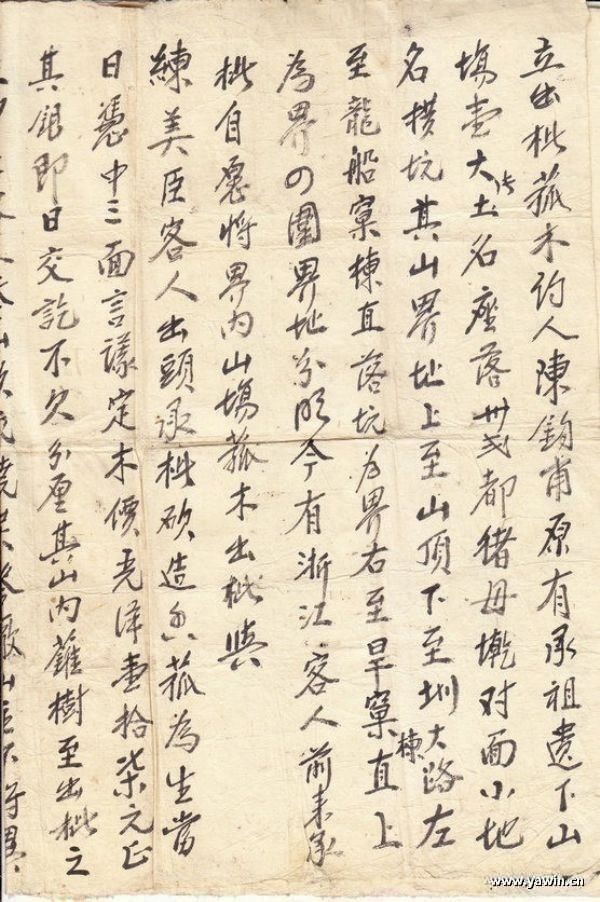 立出批菰木约人陳鈞甫原有承祖遗下山
塲壹大片土名座落卅弍都猪母墘对面小地
名横坑其山界址上至山頂下至圳大路左
至龍船窠棟直落坑为界右至旱窠棟直上
為界四圍界址分明今有浙江客人前来承
批自愿将界内山塲菰木出批與
練美臣客人出頭承批砍造香菰為生當
日憑中三面言議定木價光洋壹拾柒元正
其銀即日交訖不欠分厘其山内蕹樹至出批之
www.yawin.cn